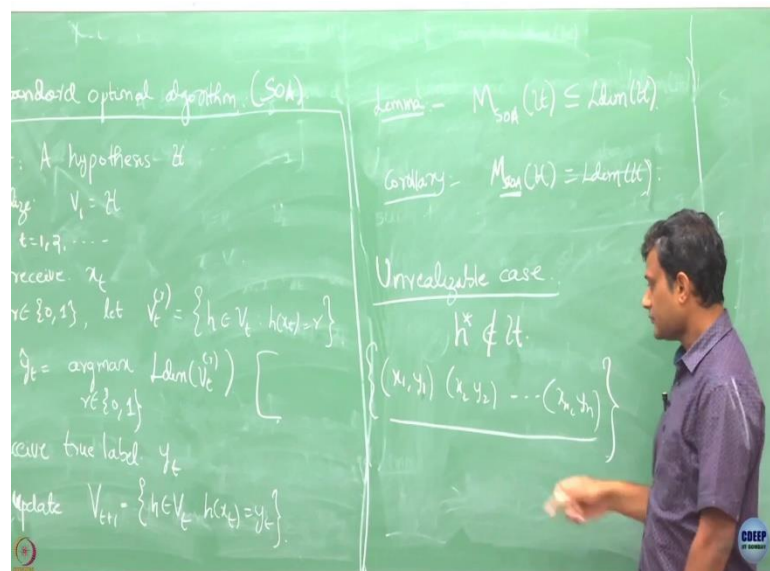 andard optimal algorithm (SOA)
: A hypothesis H
ize: V_1 = H
t=1,2,....
receive x_t
r∈{0,1}, let V_t^(r) = {h∈V_t : h(x_t)=r}
ŷ_t = argmax Ldim(V_t^(r))
r∈{0,1}
ceive true label y_t
update V_{t+1} = {h∈V_t h(x_t)=y_t}.
Lemma:- M_SOA(H) ≤ Ldim(H).
Corollary:- M_SOA(H) = Ldim(H).
Unrealizable case.
h* ∉ H.
{(x_1,y_1) (x_2 y_2) ---(x_n, y_n)}
CDEEP
IIT BOMBAY